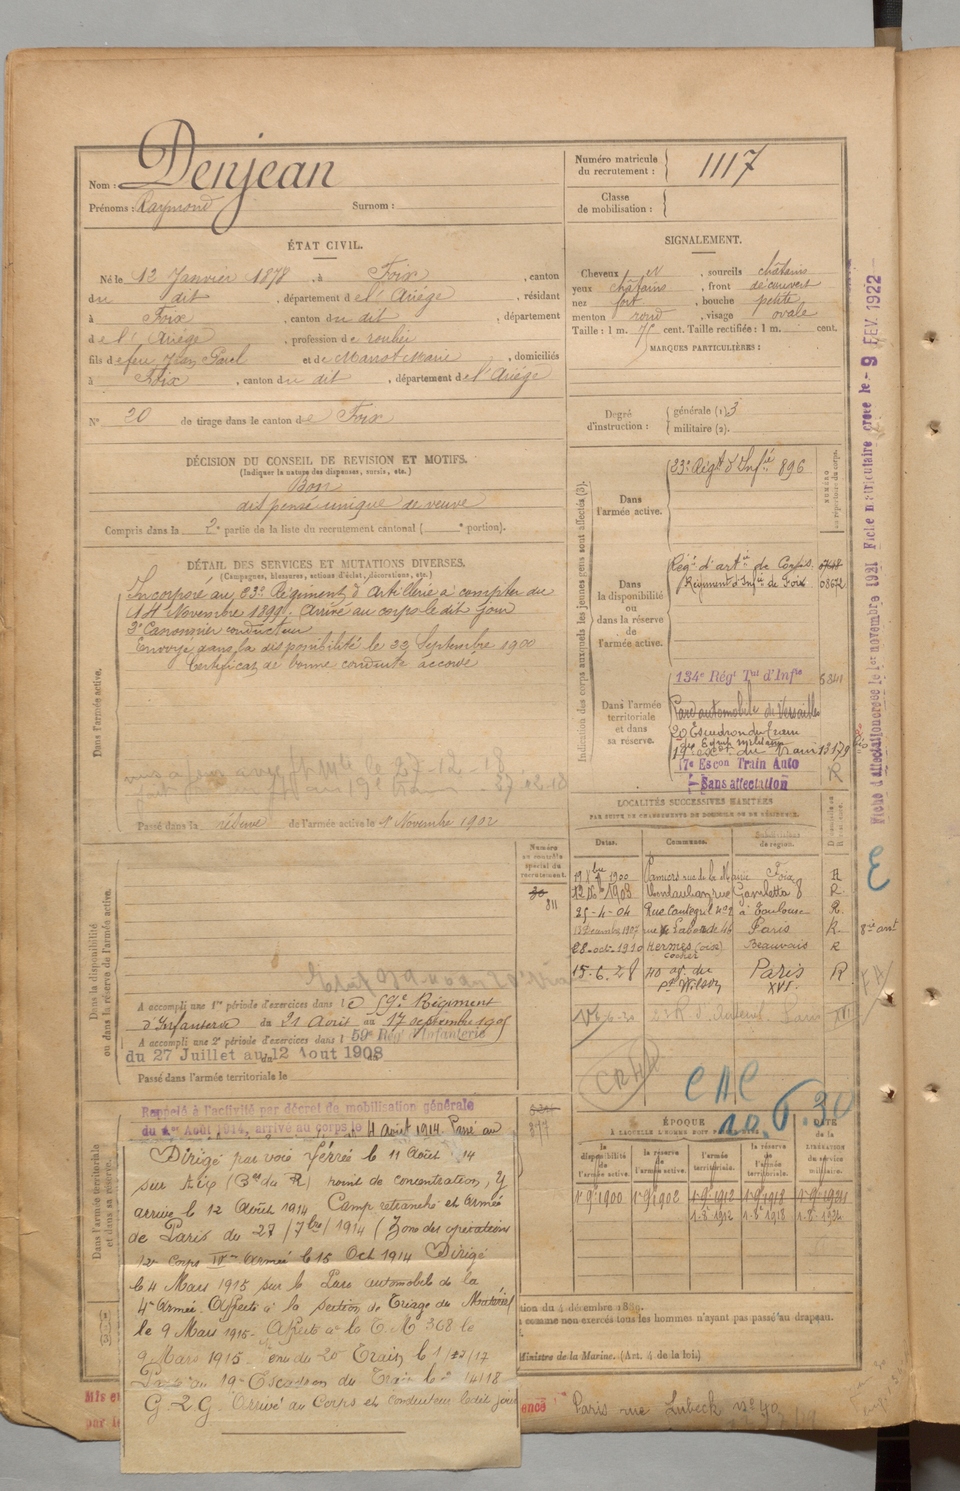 Nom : Denjean
Prénoms : Raymond Surnom :
Numéro matricule du recrutement : 1117
Classe de mobilisation :
ÉTAT CIVIL.
Né le 12 Janvier 1878, à Foix, canton
du dit, département de l'Ariège, résidant
à Foix, canton du dit, département
de l'Ariège, profession de
fils de feu Jean Paul et de Marot, domiciliés
à Foix, canton du dit, département de l'Ariège
N° 20 de tirage dans le canton de Foix
DÉCISION DU CONSEIL DE REVISION ET MOTIFS.
(Indiquer la nature des dispenses, sursis, etc.)
Bon
dispensé unique de veuve
Compris dans la 2e partie de la liste du recrutement cantonal ( e portion).
SIGNALEMENT.
Cheveux , sourcils châtains
yeux châtains, front découvert
nez fort, bouche petite
menton rond, visage ovale
Taille : 1 m. cent. Taille rectifiée : 1 m. cent.
MARQUES PARTICULIÈRES :
Degré d'instruction : générale (1) 3
militaire (2).
DÉTAIL DES SERVICES ET MUTATIONS DIVERSES.
(Campagnes, blessures, actions d'éclat, décorations, etc.)
Dans l'armée active.
Incorporé au 23e Régiment d'Artillerie à compter du
14 Novembre 1899. Arrivé au corps le dit jour
2e Canonnier conducteur
Envoyé dans la disponibilité le 22 Septembre 1900
Certificat de bonne conduite accordé
27-12-18
Passé dans la réserve de l'armée active le 1er Novembre 1902
Indication des corps auxquels les jeunes gens sont affectés (3).
NUMÉRO au répertoire du corps.
Dans l'armée active.
23e Régt d'Infie 896
Dans la disponibilité ou dans la réserve de l'armée active.
Régt d'artie de Corps 0748
Régiment d'Infie de Foix 03672
Dans l'armée territoriale et dans sa réserve.
134e Régt Tal d'Infie 5341
Parc automobile de Versailles
20 Escadron du Train
19e du Train 13179
17e Escon Train Auto
Sans affectation
R
LOCALITÉS SUCCESSIVES HABITÉES
PAR SUITE DE CHANGEMENTS DE DOMICILE OU DE RÉSIDENCE.
Dates. Communes. Subdivisions de région.
1900 Pamiers rue de la Mairie Foix R
1903 rue Gambetta 8 R
25-4-04 Rue Cantegril no 2 à Toulouse R
1907 rue Laborde 46 Paris R
28 octe 1910 Hermes (oise) Beauvais R
cocher
15-6-28 40 av. du Pt Wilson Paris XVI R
Numéro au contrôle spécial du recrutement.
30
811
Dans la disponibilité ou dans la réserve de l'armée active.
A accompli une 1re période d'exercices dans le 59e Régiment
d'Infanterie du 21 Avril au 17 septembre 1905
A accompli une 2e période d'exercices dans le 59e Régt Infanterie
du 27 Juillet au 12 Aout 1908
Passé dans l'armée territoriale le
CAC
10.6.30
Rappelé à l'activité par décret de mobilisation générale
du 1er Août 1914, arrivé au corps le 4 Août 1914. Passé au
877
Dans l'armée territoriale et dans sa réserve.
Dirigé par voie ferrée le 11 Août 14
sur Aix (Bses du R) point de concentration, y
arrive le 12 Août 1914 Camp retranché et Armée
de Paris du 27/7bre/1914 (Zone des opérations
12e Corps IVme Armée le 15 Oct 1914 Dirigé
le 4 Mars 1915 sur le Parc automobile de la
4e Armée. Affecté à la section de Triage du Matériel
le 9 Mars 1915 - Affecté à la T.M 368 le
9 Mars 1915 du 20 Train le 1/12/17
Passé au 19e Escadron du Train le 14/18
G-2G Arrivé au Corps et conducteur ledit jour
ÉPOQUE
À LAQUELLE L'HOMME DOIT PASSER DANS
la disponibilité de l'armée active. la réserve de l'armée active. l'armée territoriale. la réserve de l'armée territoriale. DATE de la LIBÉRATION du service militaire.
1er 9bre 1900 1er 9bre 1902 1er 9bre 1912 1er 9bre 1918 1er 9bre 1924
1-8e 1912 1-8e 1918 1-8-1924
tion du 4 décembre 1889.
comme non exercés tous les hommes n'ayant pas passé au drapeau.
Ministre de la Marine. (Art. 4 de la loi.)
Paris rue Lubeck no 40
Fiche d'affectation créée le 1er novembre 1921 Fiche matriculaire créée le - 9 FEV. 1922